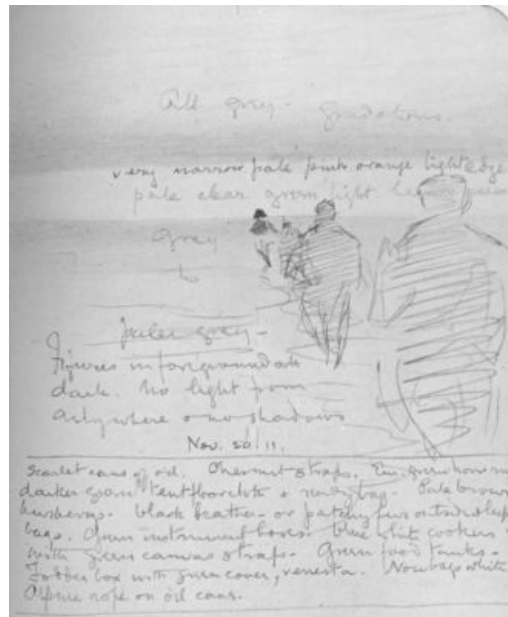 All grey - gradations.
very narrow pale pink orange light edge
pale clear green light
Grey
to
paler grey -
Figures in foreground all
dark. No light from
anywhere & no shadows
Nov. 11.
Scarlet cans of oil. Chestnut straps.
darker green tent floorcloth & bag. Pale brown
black leather - or fur outside sleep
bags. Green instrument boxes - blue white cookers
with green canvas straps. Green food tanks -
box with green cover, venesta. white
Alpine rope on oil cans.